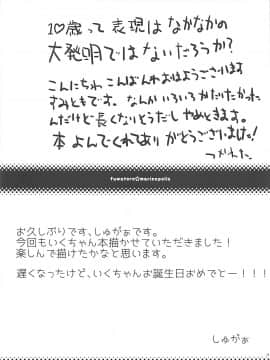 10歳って表現はなかなかの
大発明ではないだろうか?
こんにちわこんばんわおはようございます
すみともです。なんかいろいろかたりたかった
んだけど長くなりそうだしやめときます。
本よんでくれてありがとうございまーす!
yumetoro marinopolis
お久しぶりです、しゅがぁです。
今回もいくちゃん本描かせていただきました!
楽しんで描けたかなと思います。
遅くなったけど、いくちゃんお誕生日おめでとー!!!
しゅがぁ